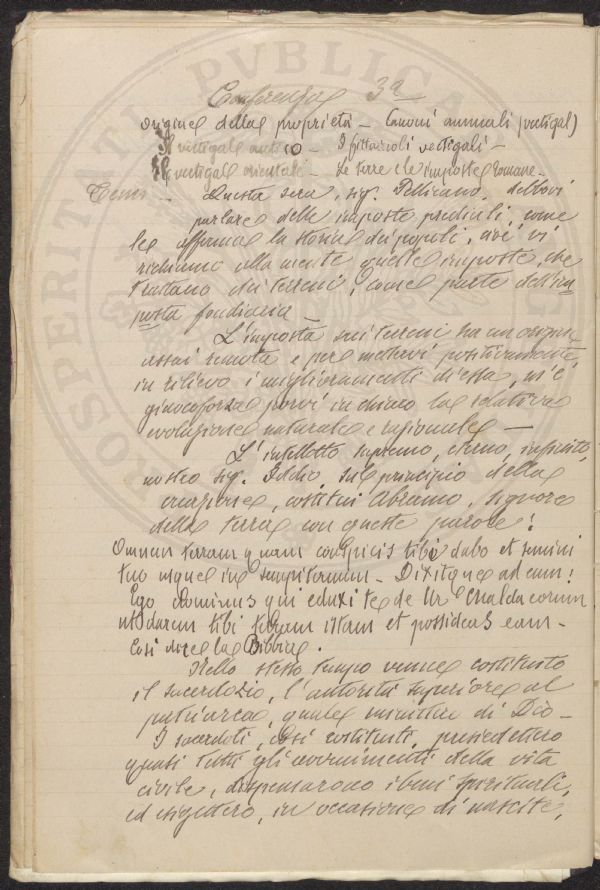 PROSPERITATI PVBLICAE
Conferenza 3a
Origine della proprietà – Canoni annuali (vectigal)
Il vectigale antico – I fittaiuoli vectigali –
Il vectigale orientale – Le terre e le imposte Romane –
Questa sera, sig. Pellicano, debbovi
parlare delle imposte prediali, come
le afferma la storia dei popoli, cioè vi
richiamo alla mente quelle imposte, che
trattano dei terreni, come parte dell'im
posta fondiaria –
L'imposta sui terreni ha un origine
assai remota e per mettervi positivamente
in rilievo i miglioramenti di essa, m'è
giuocoforza porvi in chiaro la relativa
evoluzione naturale e razionale –
L'intelletto supremo, eterno, infinito,
nostro sig. Iddio, sul principio della
creazione, costituì Abramo, signore
della terra con queste parole:
Omnem terram quam conspicis tibi dabo et semini
tuo usque in sempiternum – Dixitque ad eum:
Ego Dominus qui eduxi te de Ur Chaldaeorum
ut darem tibi terram istam et possideas eam –
Così dice la Bibbia.
Nello stesso tempo venne costituito
il sacerdozio, l'autorità superiore al
patriarca, quale ministro di Dio –
I sacerdoti, così costituiti, presiedettero
quasi tutti gli avvenimenti della vita
civile, dispensarono i beni spirituali,
ed esigettero, in occasione di nascite,